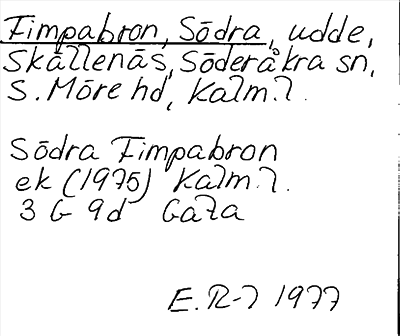 Fimpabron, Södra, udde,
Skällenäs, Söderåkra sn,
S. Möre hd, Kalm. l.
Södra Fimpabron
ek (1975) Kalm. l.
3 G 9d Gata
E. R-7 1977